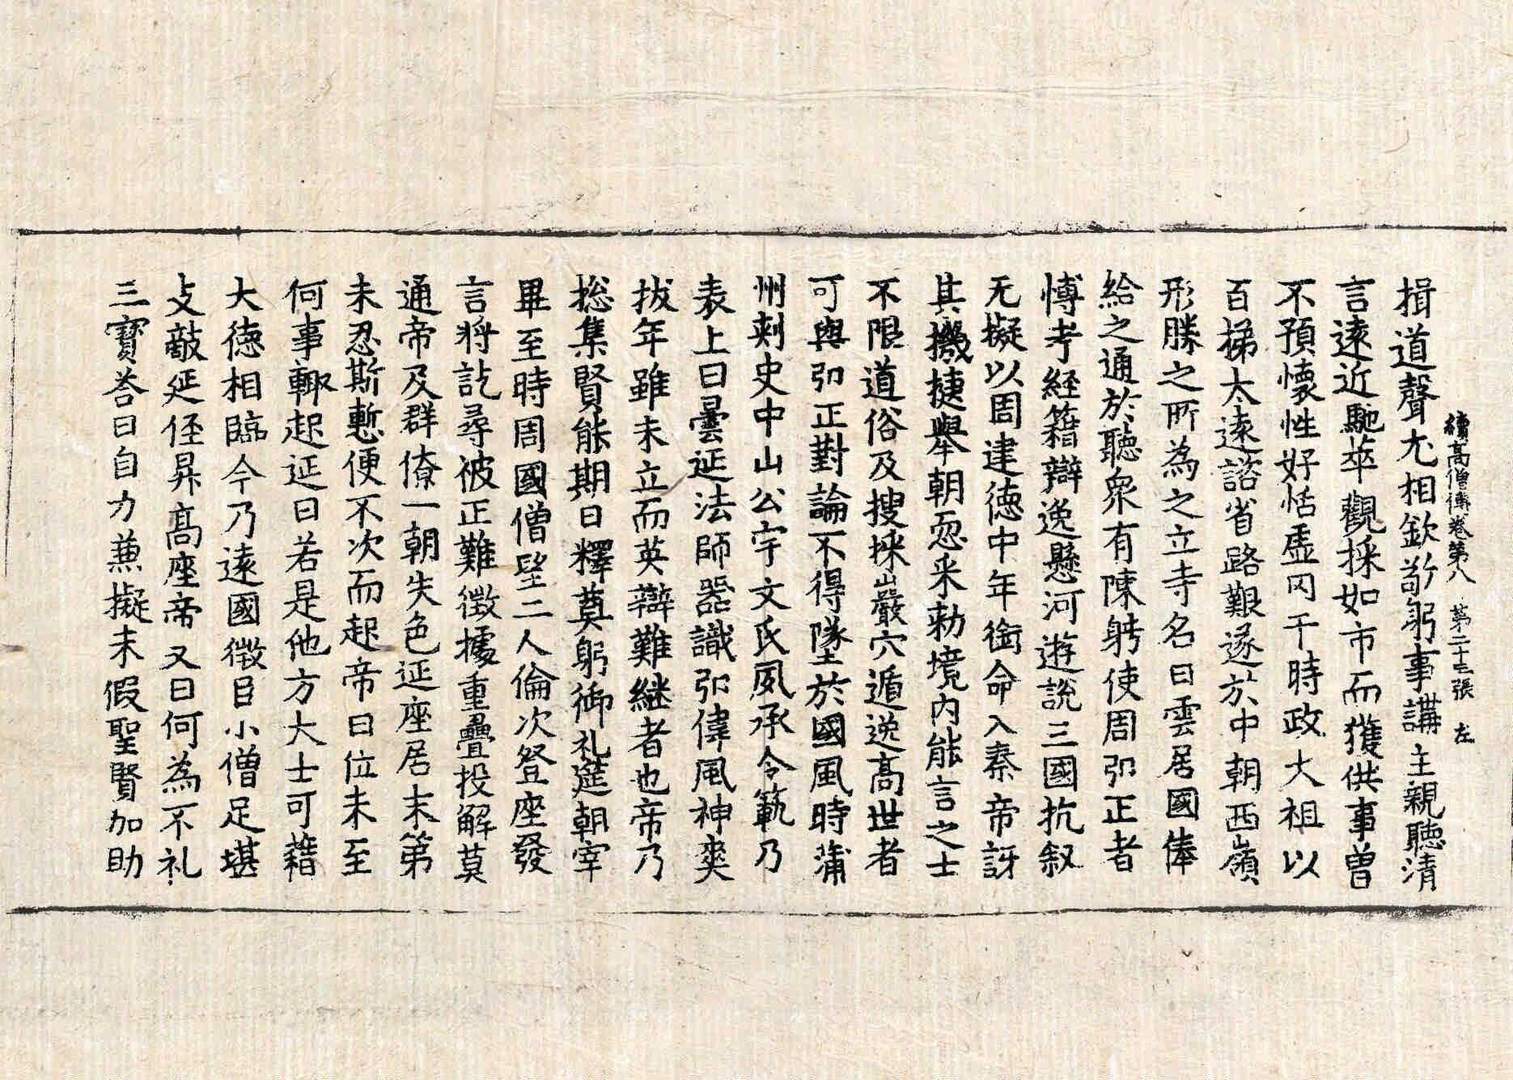 續高僧傳卷第八　第二十三張　左
揖道聲尤相欽敬躬事講主親聽清
言遠近馳萃觀採如市而獲供事曾
不預懷性好恬虛罔干時政大祖以
百梯太遠諮省路艱遂於中朝西嶺
形勝之所為之立寺名曰雲居國俸
給之通於聽衆有陳躬使周弘正者
博考經籍辯逸懸河遊說三國抗叙
无擬以周建德中年銜命入秦帝訝
其機捷舉朝恧采勅境内能言之士
不限道俗及搜採巖穴遁逸高世者
可與弘正對論不得墜於國風時蒲
州刺史中山公宇文氏夙承令範乃
表上曰曇延法師器識弘偉風神爽
拔年雖未立而英辯難継者也帝乃
捴集賢能期日釋奠躬御礼筵朝宰
畢至時周國僧望二人倫次登座發
言將訖尋被正難徵據重疊投解莫
通帝及群僚一朝失色延座居末第
未忍斯慙便不次而起帝曰位未至
何事輙起延曰若是他方大士可藉
大德相臨今乃遠國微臣小僧足堪
支敵延徑昇高座帝又曰何為不礼
三寶荅曰自力兼擬未假聖賢加助